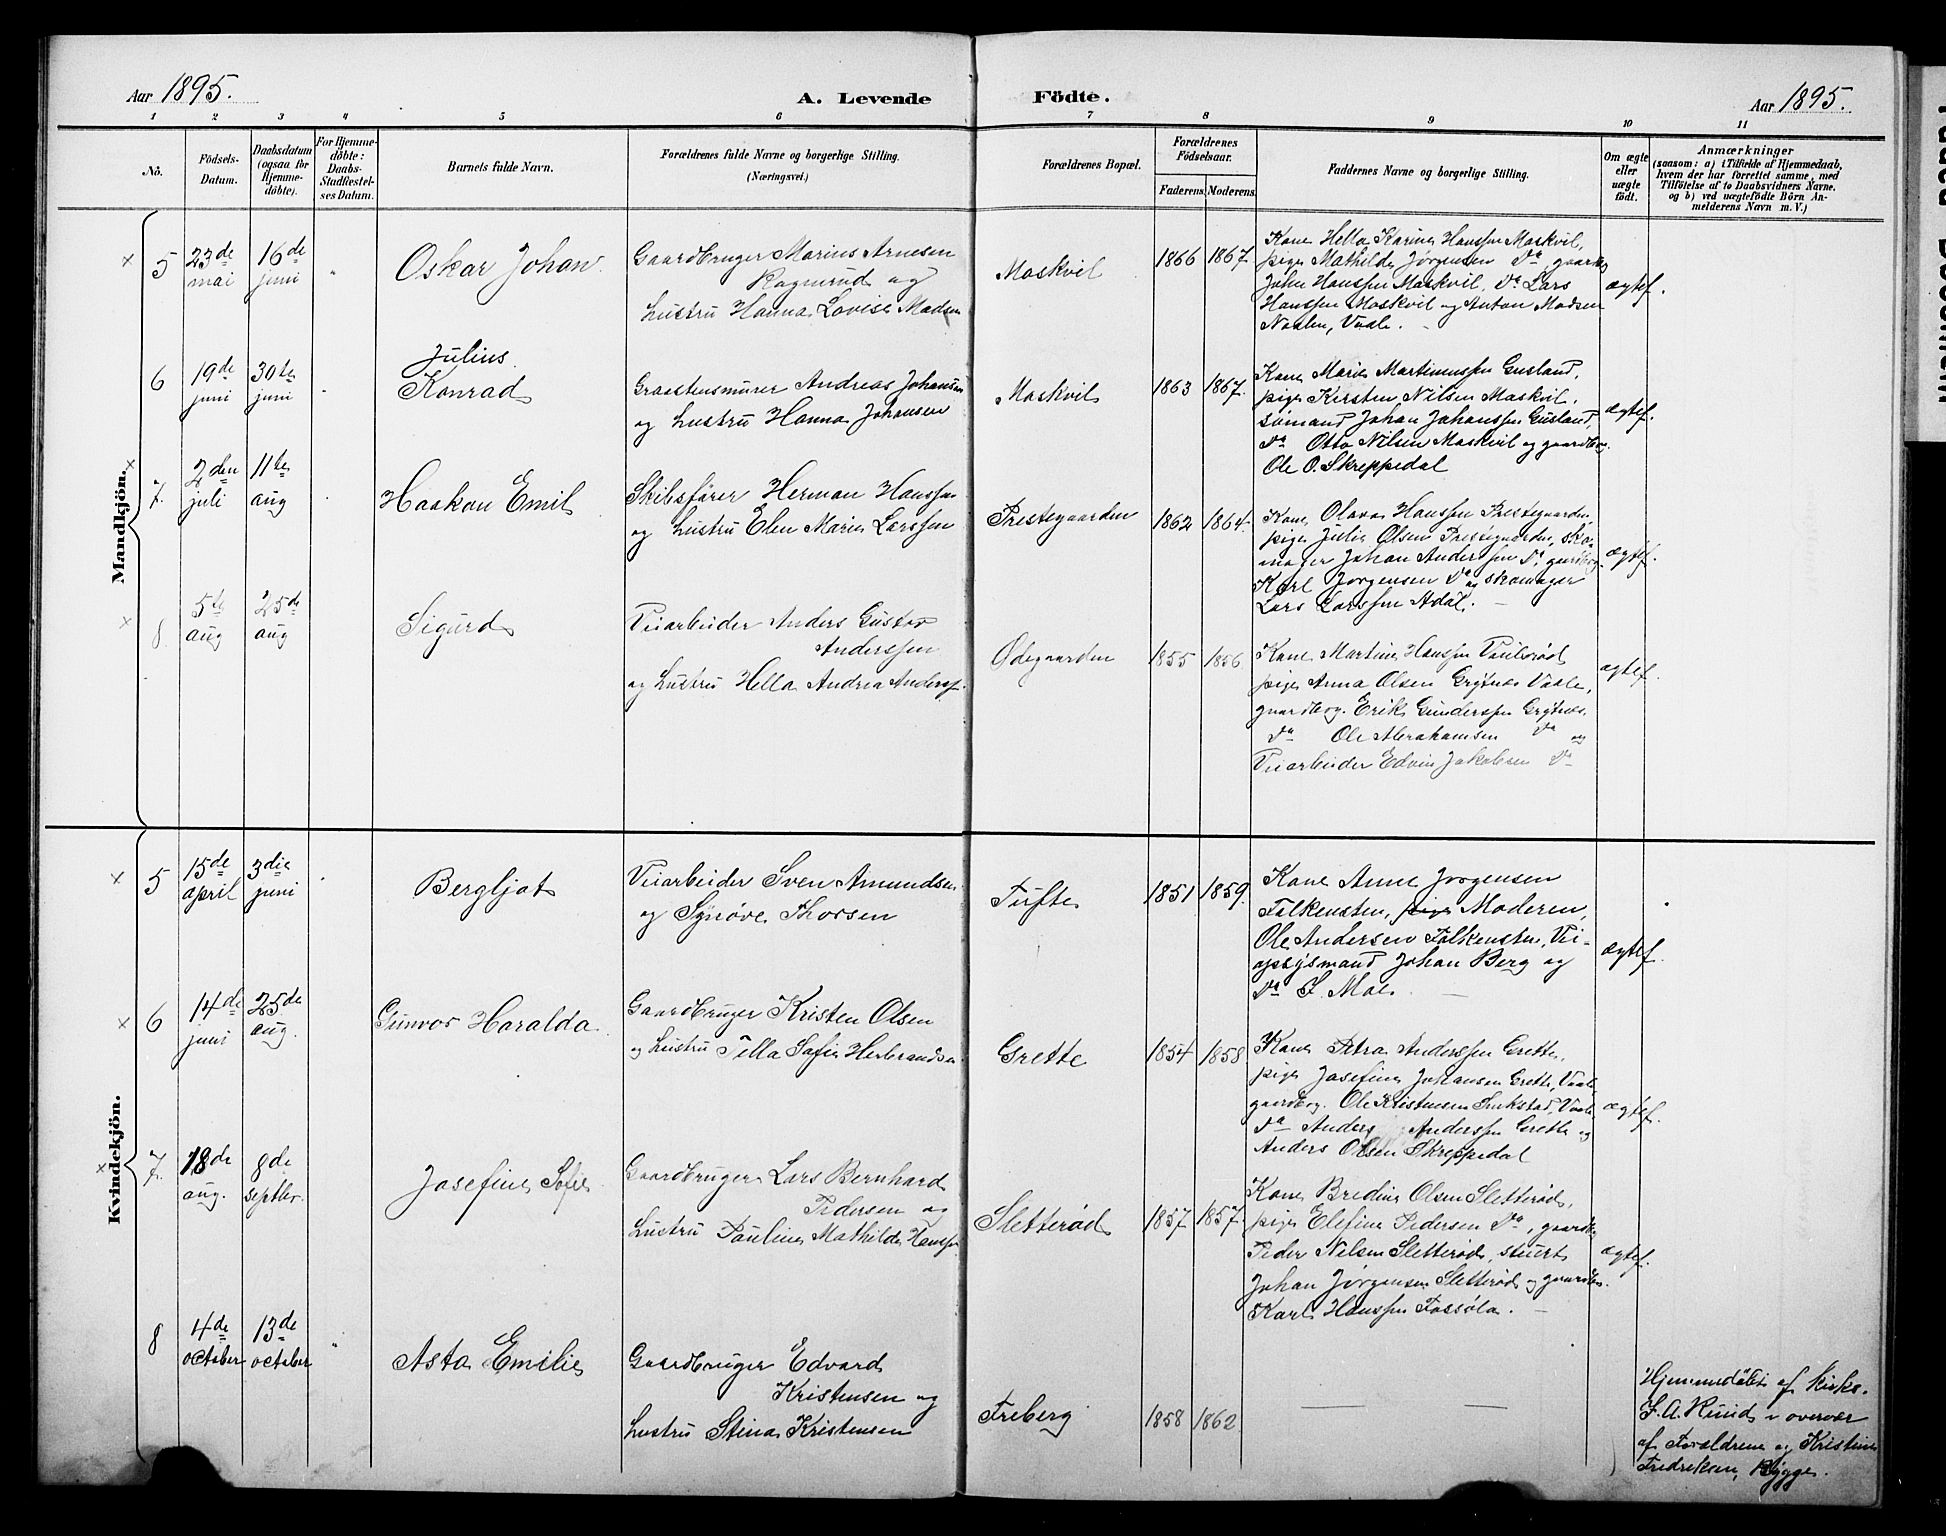 Aar 1895.
A. Levende Födte.
Aar 1895.
1 2 3 4 5 6 7 8 9 10 11
No.
Födsels-
Datum.
Daabsdatum
(ogsaa for
Hjemme-
döbte).
For Hjemme-
döbte:
Daabs-
Stadfæstel-
ses Datum.
Barnets fulde Navn.
Forældrenes fulde Navne og borgerlige Stilling.
(Næringsvei.)
Forældrenes Bopæl.
Forældrenes
Födselsaar.
Faderens. Moderens.
Faddernes Navne og borgerlige Stilling.
Om ægte
eller
uægte
födt.
Anmærkninger
(saasom: a) i Tilfælde af Hjemmedaab,
hvem der har forrettet samme, med
Tilföielse af to Daabsvidners Navne,
og b) ved uægtefödte Börn An-
melderens Navn m. V.)
Mandkjön.
5
23de
mai
16de
juni
Oskar Johan
Gaardbruger Marius Arnesen
Ragnerud og
hustru Hanna Lovise Madsen
Maskvil
1866 1867.
Kone Hella Karine Hanssen Maskvil,
pige Mathilde Jørgensen Do gaardbr.
John Hanssen Maskvil, Do Lars
Hanssen Maskvil og Anton Madsen
Vaale.
ægtef.
6
19de
juni
30te
juni
Julius
Konrad
Graastensmurer Andreas Johansen
og hustru Hanna Johansen
Maskvil
1863 1867.
Kone Marie Martinussen Gusland,
pige Kirsten Nilsen Maskvil.
sømand Johan Johanssen Gusland,
Do Otto Nilsen Maskvil og gaardbrg.
Ole O. Skreppedal
ægtef.
7.
2den
juli
11te
aug
Haakon Emil
Skibsfører Herman Hanssen
og hustru Elen Marie Larssen
Prestegaarden
1862 1864.
Kone Olava Hanssen Prestegaarden,
pige Julie Olsen Prestegaarden, sko-
mager Johan Anderssen Do, gaardbrg.
Karl Jørgensen Do og skomager
Lars Larssen Adal.
ægtef.
8.
5te
aug
25de
aug
Sigurd
Veiarbeider Anders Gustav
Anderssen
og hustru Hella Andrea Anderss.
Ødegaarden
1855 1856.
Kone Martine Hanssen
pige Anna Olsen Grytnes Vaale,
gaardbrg. Erik Gunderssen Grytnes.
Do Ole Abrahamsen Do og
Veiarbeider Edvin Jakobsen Do
ægtef.
Kvindekjön.
5
15de
april
3die
juni
Bergljot
Veiarbeider Sven Amundsen
og Synøve Thorsen
Tufte
1851 1859.
Kone Anne Jørgensen
Falkensten, pige Moderen,
Ole Andersen Falkensten, Vei-
opsysmand Johan Berg og
Do S. Moe.
ægtef.
6
14de
juni
25de
aug.
Gunvor Haralda
Gaardbruger Kristen Olsen
og hustru Tella Sofie Herbrandsen
Grette
1854 1858.
Kone Petra Anderssen Grette,
pige Josefine Johansen Grette, Vaale
gaardbrg. Ole Kristensen Vaale
Do Anders Anderssen Grette og
Anders Olsen Skreppedal
ægtef.
7.
18de
aug.
8de
septbr.
Josefine Sofie
Gaardbruger Lars Bernhard
Pedersen og
hustru Pauline Mathilde Hanss.
Sletterød
1857 1857.
Kone Bredine Olsen Sletterød,
pige Elefine Pedersen Do, gaardbr.
Peder Nilsen Sletterød, stuert
Johan Jørgensen Sletterød og gaardbr.
Karl Hanssen Fossola.
ægtef.
8
4de
october
13de
october
"
Asta Emilie
Gaardbruger Edvard
Kristensen og
hustru Stina Kristensen
Freberg
1858 1862.
Hjemmedøbt af Kirkes.
F. A. i overvær
af Forældrene og Kristine
Fredriksen, Rygge.